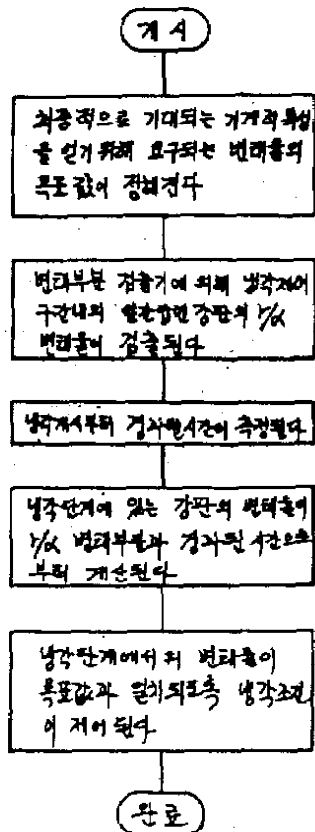 개시
최종적으로 기대되는 기계적특성
을 얻기 위해 요구되는 변태율의
목표값이 정해진다
변태부분 검출기에 의해 냉각제어
구간내의 열간압연강판의 γ/α
변태율이 검출된다
냉각개시부터 경과된시간이 측정된다
냉각단계에 있는 강판의 변태율이
γ/α 변태부분과 경과된 시간으로
부터 계산된다
냉각단계에서의 변태율이
목표값과 일치되도록 냉각조건
이 제어된다
완료